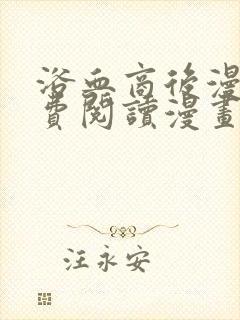 浴血商後漫
費閱讀漫畫
汪永安